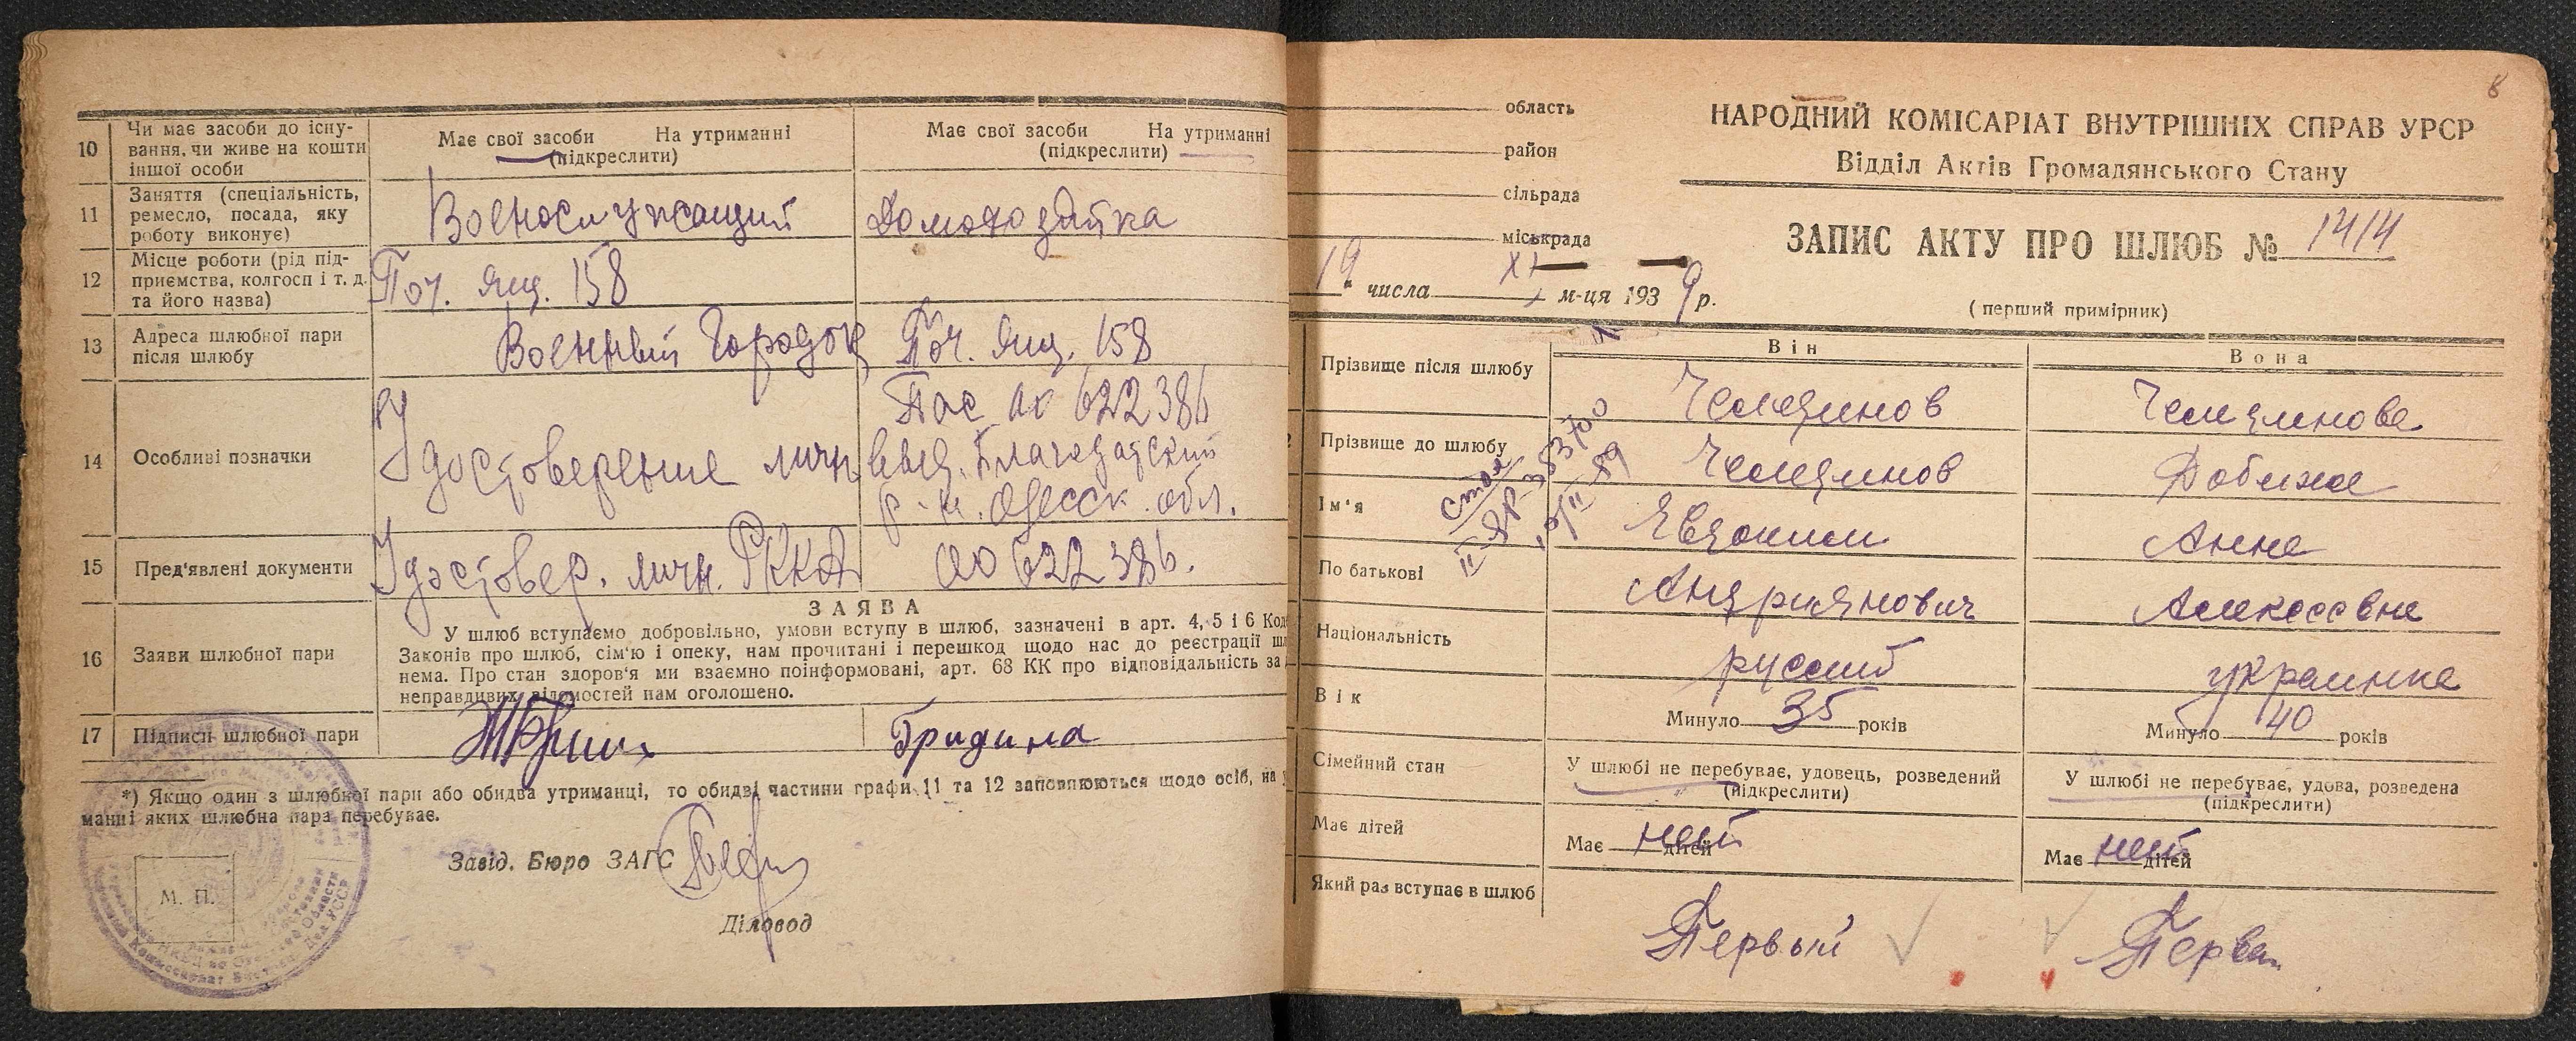 10
Чи має засоби до існу-
вання, чи живе на кошти
іншої особи
Має свої засоби На утриманні
(підкреслити)
Має свої засоби На утриманні
(підкреслити)
11
Заняття (спеціальність,
ремесло, посада, яку
роботу виконує)
Военослужащий
Домохозяйка
12
Місце роботи (рід під-
приємства, колгосп і т. д.
та його назва)
Поч. Ящ. 158
13
Адреса шлюбної пари
після шлюбу
Военный Городок Поч. Ящ. 158
14
Особливі позначки
Удостоверение личн.
Пас 622386
выд. Благодатский
р-н. Одесск. обл.
15
Пред'явлені документи
Удостовер. личн. РККА
622386.
16
Заяви шлюбної пари
ЗАЯВА
У шлюб вступаємо добровільно, умови вступу в шлюб, зазначені в арт. 4, 5 і 6 Код
Законів про шлюб, сім'ю і опеку, нам прочитані і перешкод щодо нас до реєстрації шл
нема. Про стан здоров'я ми взаємно поінформовані, арт. 68 КК про відповідальність за
неправдивих відомостей нам оголошено.
17
Підписи шлюбної пари
Гридина
*) Якщо один з шлюбної пари або обидва утриманці, то обидві частини графи 11 та 12 заповнюються щодо осіб, на у
манні яких шлюбна пара перебуває.
Завід. Бюро ЗАГС
М. П.
Діловод
8
область
район
сільрада
міськрада
19 числа XI м-ця 1939 р.
НАРОДНИЙ КОМІСАРІАТ ВНУТРІШНІХ СПРАВ УРСР
Відділ Актів Громадянського Стану
ЗАПИС АКТУ ПРО ШЛЮБ № 1414
(перший примірник)
Він
Вона
Прізвище після шлюбу
Челединов
Челединова
Прізвище до шлюбу
Челединов
Добижа
Ім'я
Евдоким
Анна
По батькові
Андриянович
Алексеевна
Національність
русский
украинка
Вік
Минуло 35 років
Минуло 40 років
Сімейний стан
У шлюбі не перебуває, удовець, розведений
(підкреслити)
У шлюбі не перебуває, удова, розведена
(підкреслити)
Має дітей
Має нет дітей
Має нет дітей
Який раз вступає в шлюб
Первый
Первая